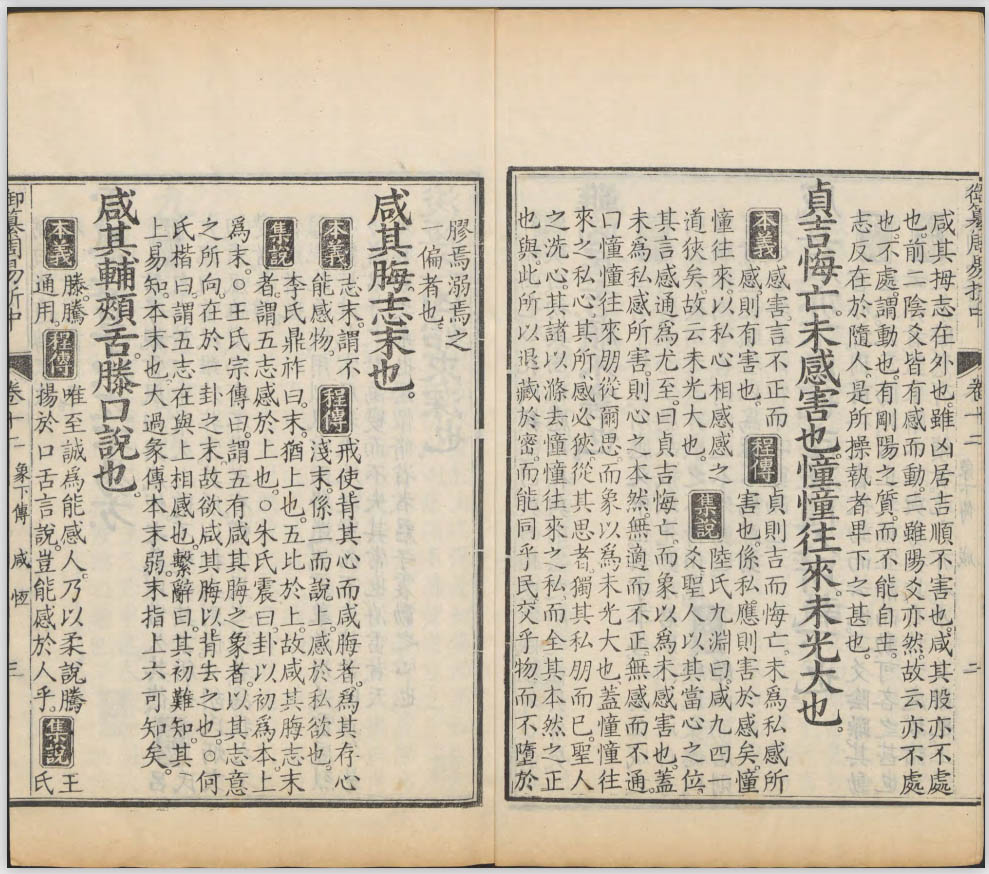 御纂周易折中 卷十二 二
咸其拇志在外也雖凶居吉順不害也。咸其股亦不處
也。前二陰爻皆有感而動。三雖陽爻亦然。故云亦不處
也。不處謂動也。有剛陽之質。而不能自主。
志反在於隨人。是所操執者卑下之甚也。
貞吉悔亡。未感害也。憧憧往來。未光大也。
本義 感害。言不正而 程傳 貞則吉而悔亡。未爲私感所
感則有害也。 害也。係私應則害於感矣。憧
憧往來。以私心相感。感之 集說 陸氏九淵曰。咸九四一
道狹矣。故云未光大也。 爻。聖人以其當心之位。
其言感通爲尤至。曰貞吉悔亡。而象以爲未感害也。蓋
未爲私感所害。則心之本然。無適而不正。無感而不通。
曰憧憧往來。朋從爾思。而象以爲未光大也。蓋憧憧往
來之私心。其所感必狹。從其思者。獨其私朋而已。聖人
之洗心。其諸以滌去憧憧往來之私。而全其本然之正
也與。此所以退藏於密。而能同乎民。交乎物。而不墮於
膠焉溺焉之
一偏者也。
咸其脢。志末也。
本義 志末。謂不 程傳 戒使背其心而咸脢者。爲其存心
能感物。 淺末。係二而說上。感於私欲也。
集說 李氏鼎祚曰。末。猶上也。五比於上。故咸其脢志末
者。謂五志感於上也。○朱氏震曰。卦以初爲本。上
爲末。○王氏宗傳曰。謂五有咸其脢之象者。以其志意
之所向。在於一卦之末。故欲咸其脢以背去之也。○何
氏楷曰。謂五志在與上相感也。繫辭曰。其初難知。其
上易知。本末也。大過彖傳本末弱。末指上六可知矣。
咸其輔頰舌。滕口說也。
本義 滕騰 程傳 唯至誠爲能感人。乃以柔說騰 集說 王
通用。 揚於口舌言說。豈能感於人乎。 氏
御纂周易折中 卷十二 象下傳 咸 恆 三